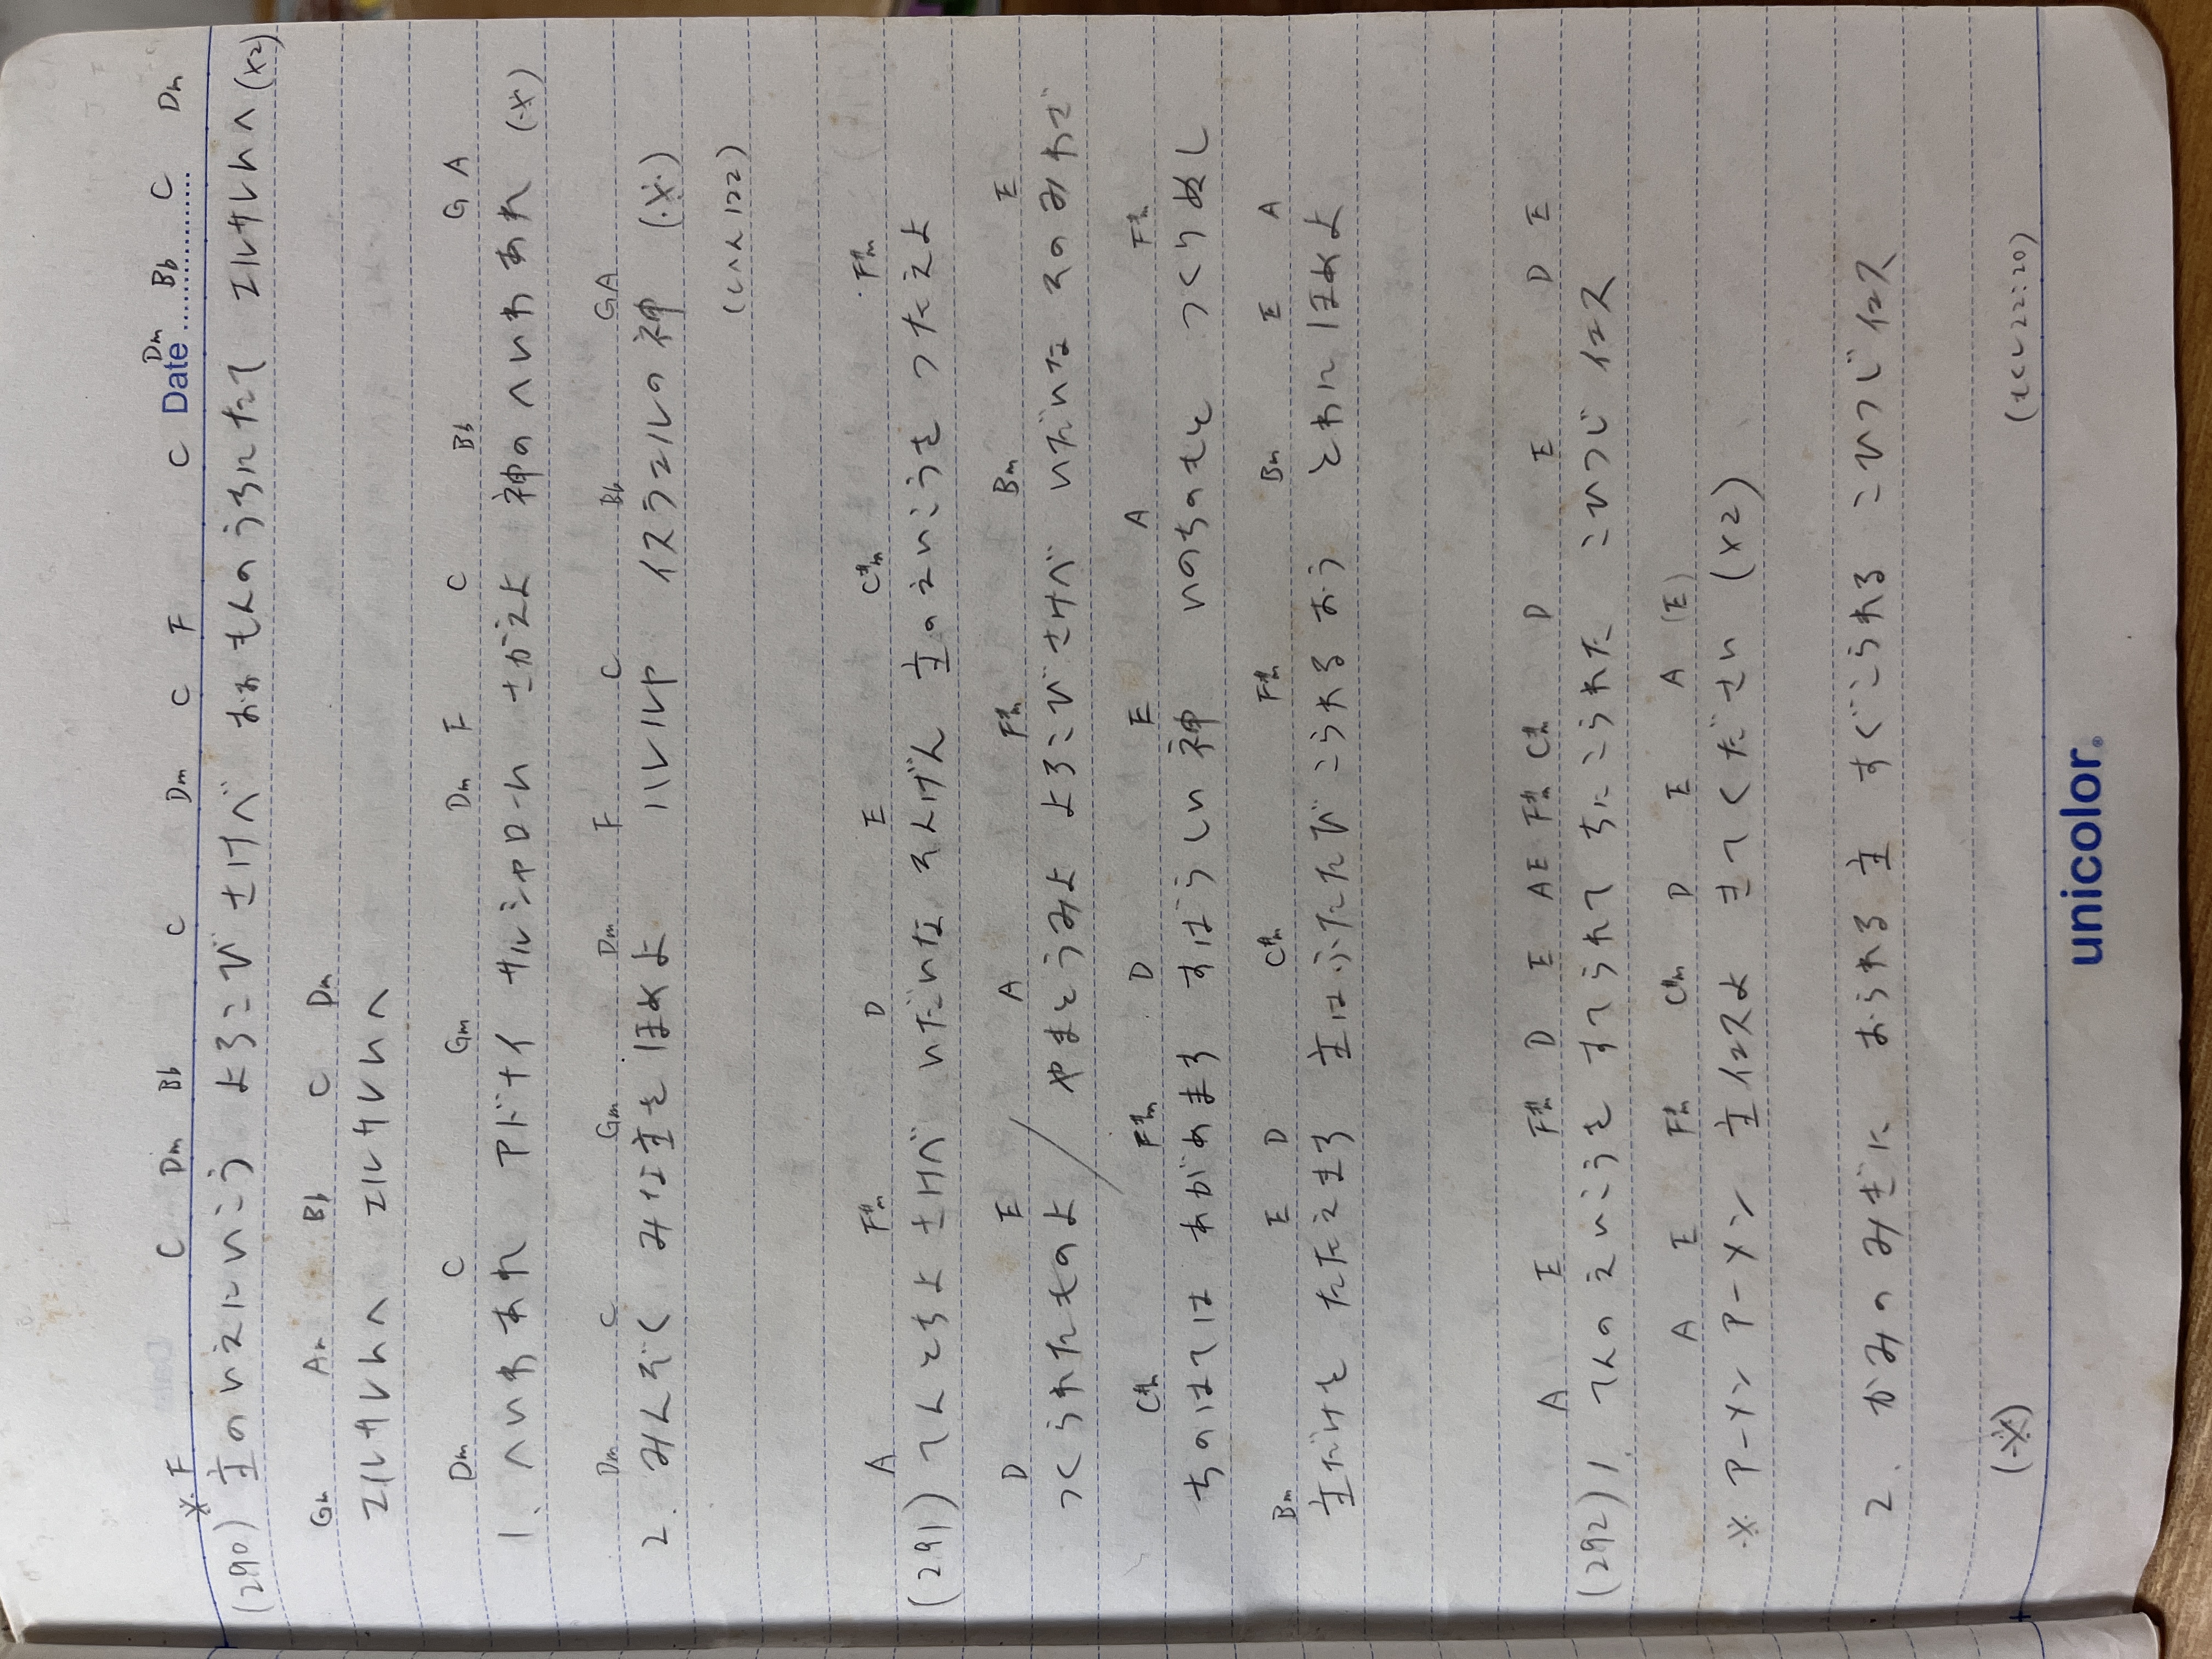 Date
※ F C Dm Bb C Dm C F C Dm Bb C Dm
(290) 主のいえにいこう よろこび さけべ おおもんのうちにたて エルサレムへ (x2)
Gm Am Bb C Dm
エルサレムへ エルサレムへ
Dm C Gm Dm F C Bb G A
1. へいわあれ アドナイ サルシャローム さかえよ 神のへいわあれ (※)
Dm C Gm Dm F C Bb G A
2. みんぞく みな主を ほめよ ハレルヤ イスラエルの神 (※)
(しへん122)
A F#m D E C#m F#m
(291) てんとちよ さけべ いだいな そんげん 主のえいこうを つたえよ
D E A F#m Bm E
つくられたものよ / やまとうみよ よろこびさけべ いだいな そのみわざ
C#m F#m D E A F#m
ちのはては あがめまつ すばらしい神 いのちのもと つくりぬし
Bm E D C#m F#m Bm E A
主だけを たたえまつ 主はふたたび こられる おう とわに ほめよ
A E F#m D E A E F#m C#m D E D E
(292) 1. てんの えいこうを すてられて ちに こられた こひつじ イエス
A E F#m C#m D E A (E)
※ アーメン アーメン 主イエスよ きてください (x2)
2. かみの みぎに おられる主 すぐこられる こひつじ イエス
(※) (もくし22:20)
unicolor®